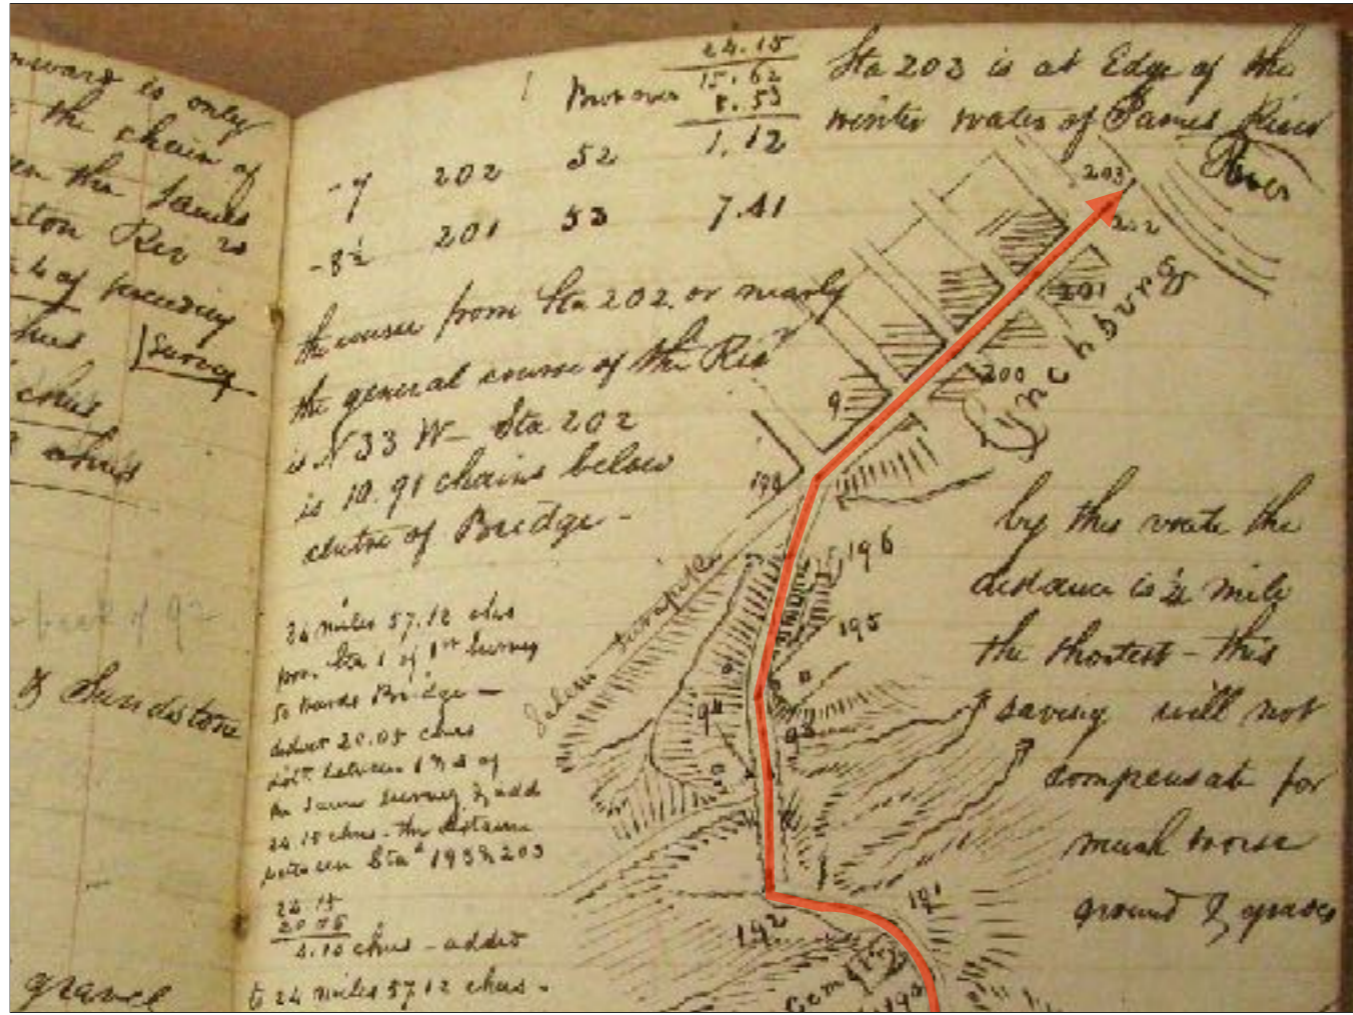 is only
the chain of
the James
Riv is
of preceding
Survey
chns
chns
of Sandstone
gravel
24.15
15.62
8.53
1.12
-7 202 52
-8½ 201 53 7.41
the course from Sta 202 or nearly
the general course of the Riv
is N 33 W - Sta 202
is 10.91 chains below
centre of Bridge -
24 miles 57.12 chns
from Sta 1 of 1st Survey
towards Bridge -
deduct 20.05 chns
dist between
the same survey & add
24.15 chns - the distance
between Sta 193 & 203
24.15
20.05
4.10 chns - added
to 24 miles 57.12 chns -
Sta 203 is at Edge of the
winter water of James River
River
203
202
201
200
Lynchburg
9
198
Salem turnpike
196
195
94
93
192
191
Cem
by this route the
distance is ½ mile
the shortest - this
saving will not
compensate for
much worse
ground & grades